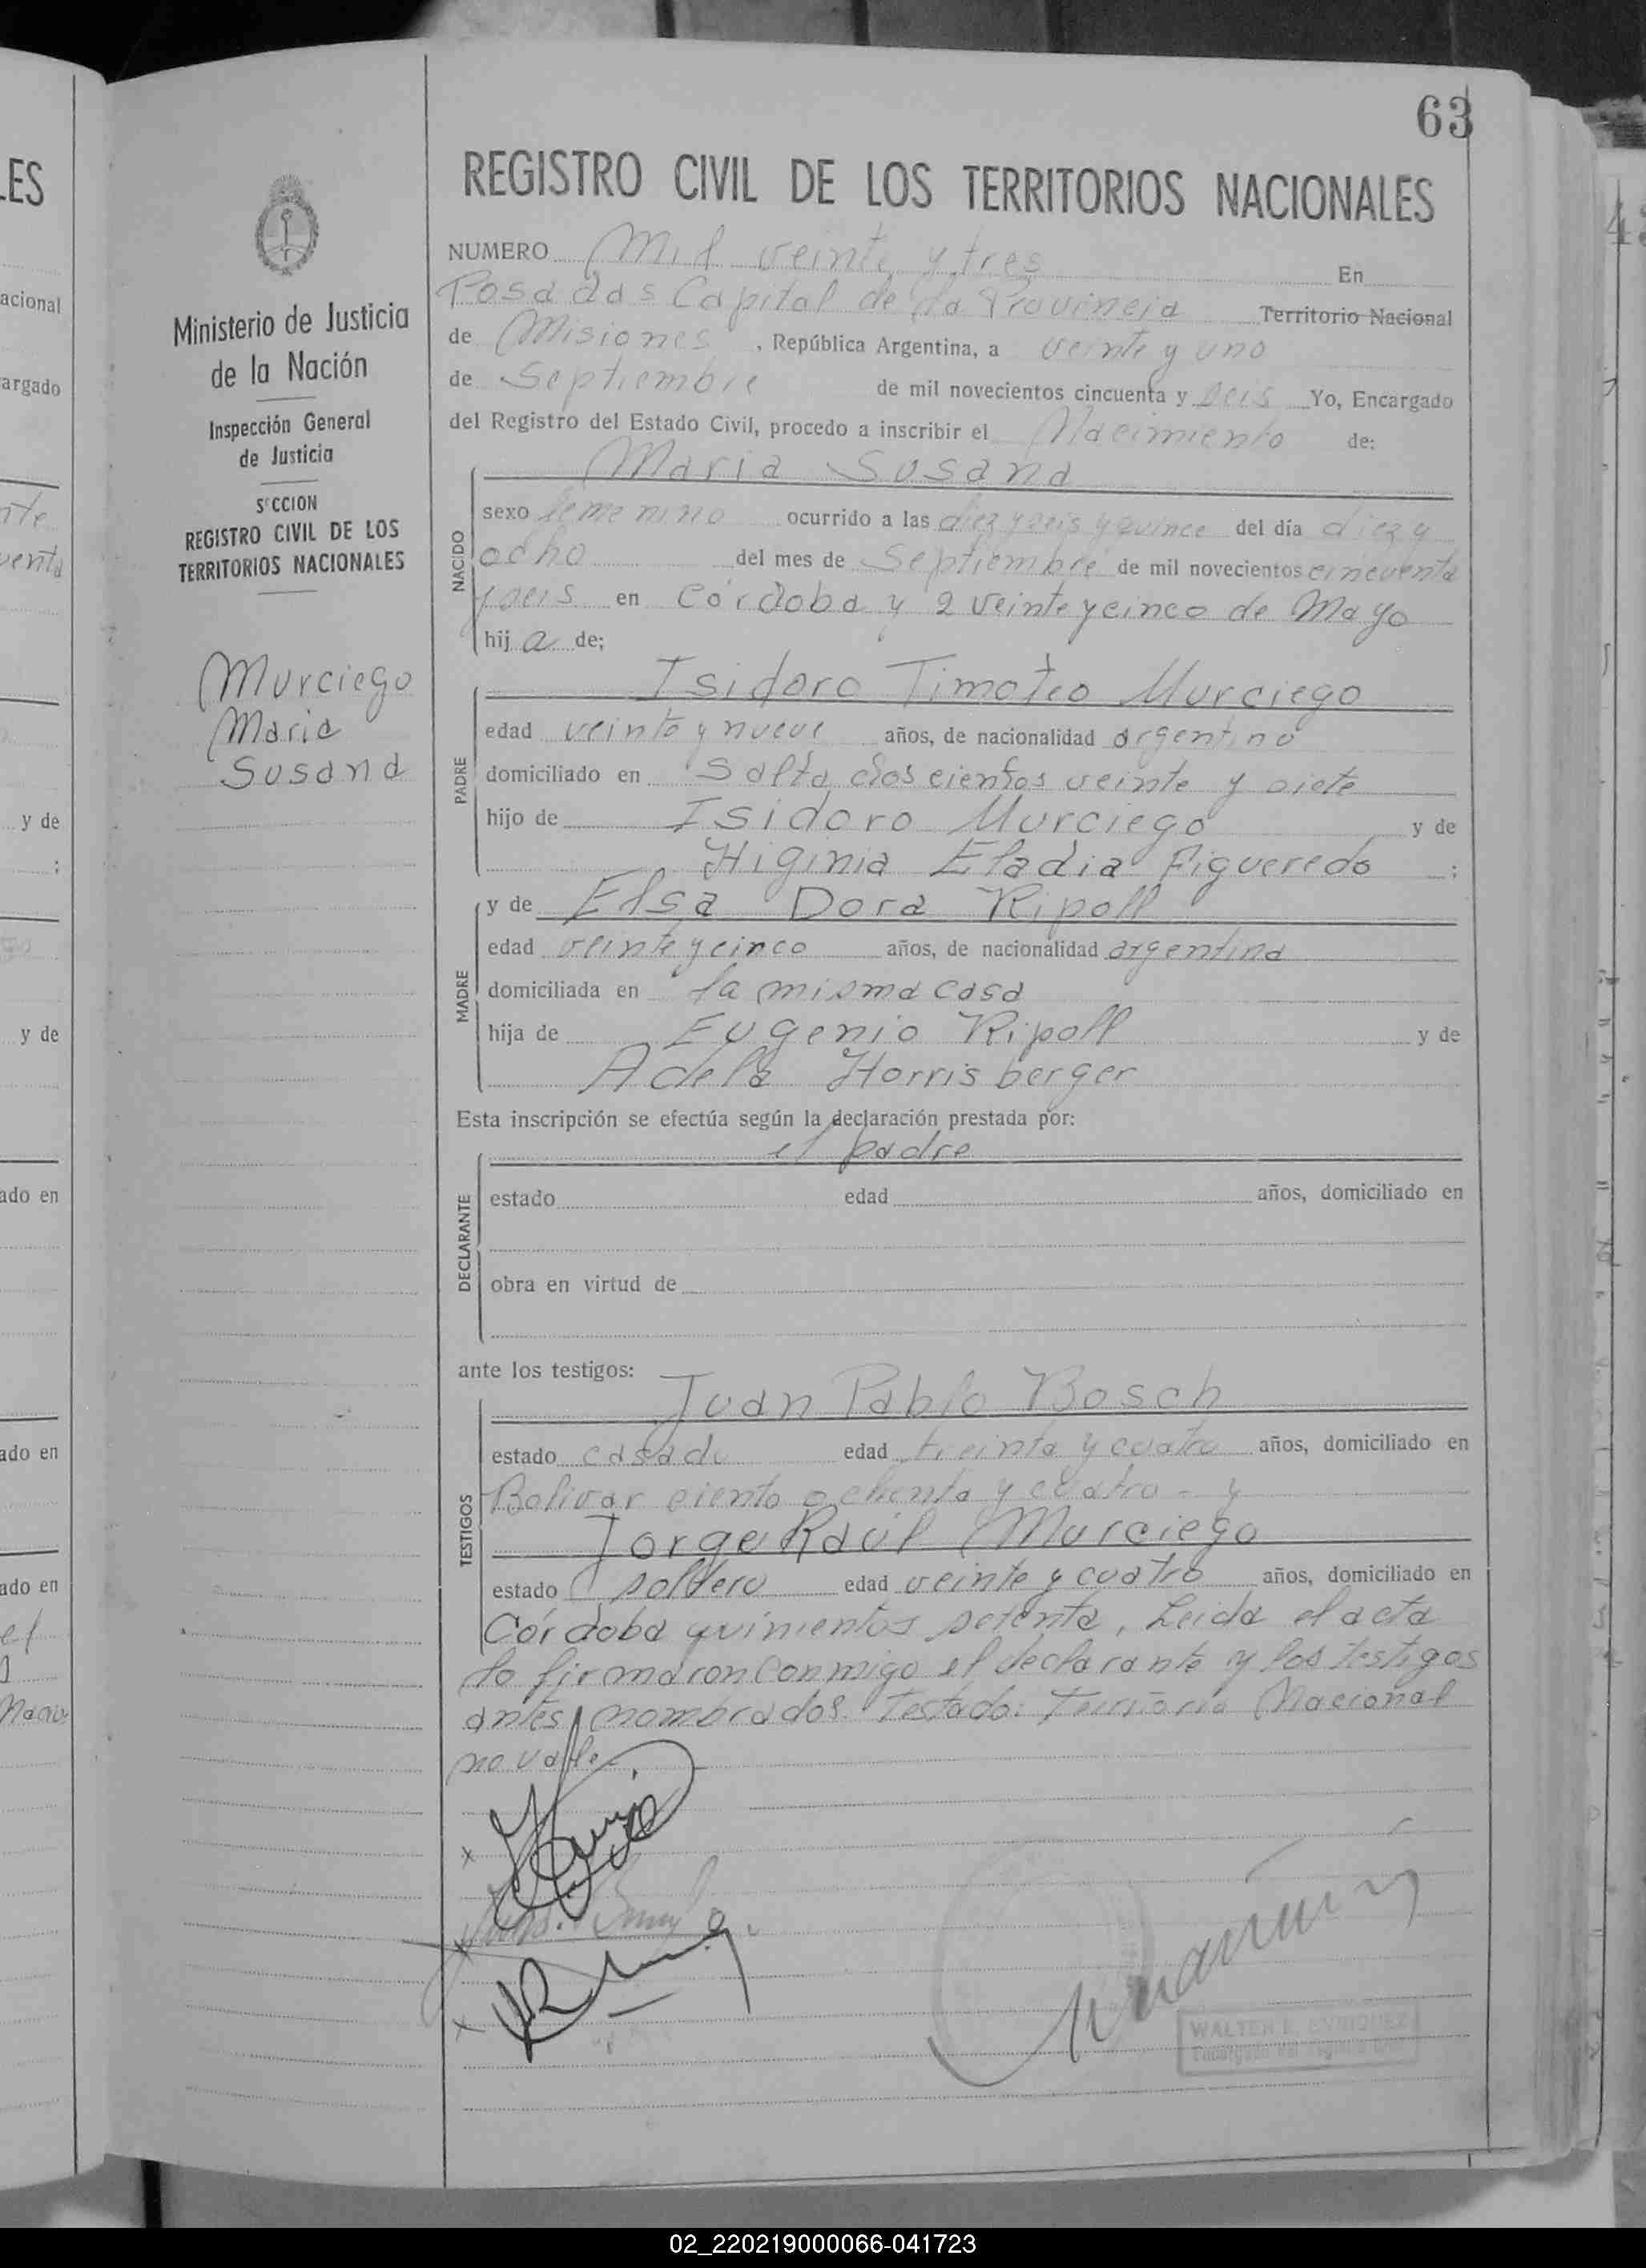 63
REGISTRO CIVIL DE LOS TERRITORIOS NACIONALES
NUMERO Mil veinte y tres En
Posadas Capital de la Provincia Territorio Nacional
de Misiones, República Argentina, a veinte y uno
de Septiembre de mil novecientos cincuenta y seis Yo, Encargado
del Registro del Estado Civil, procedo a inscribir el Nacimiento de:
Maria Susana
NACIDO
sexo femenino ocurrido a las diez y seis y quince del día diez y
ocho del mes de Septiembre de mil novecientos cincuenta
y seis en Córdoba y 2 veinte y cinco de Mayo
hija de;
Isidoro Timoteo Murciego
PADRE
edad veinte y nueve años, de nacionalidad argentino
domiciliado en Salta doscientos veinte y siete
hijo de Isidoro Murciego y de
Higinia Eladia Figueredo ;
y de Elsa Dora Ripoll
MADRE
edad veinte y cinco años, de nacionalidad argentina
domiciliada en la misma casa
hija de Eugenio Ripoll y de
Adela Horrisberger
Esta inscripción se efectúa según la declaración prestada por:
el padre
DECLARANTE
estado edad años, domiciliado en
obra en virtud de
ante los testigos:
Juan Pablo Bosch
TESTIGOS
estado casado edad treinta y cuatro años, domiciliado en
Bolivar ciento ochenta y cuatro - y
Jorge Raúl Murciego
estado soltero edad veinte y cuatro años, domiciliado en
Córdoba quinientos setenta, Leida el acta
la firmaron conmigo el declarante y los testigos
antes nombrados. Testado: Territorio Nacional
no vale
WALTER E. ENRIQUEZ
Encargado del Registro Civil
Ministerio de Justicia
de la Nación
Inspección General
de Justicia
SECCION
REGISTRO CIVIL DE LOS
TERRITORIOS NACIONALES
Murciego
Maria
Susana
LES
acional
argado
nte
venta
y de
;
y de
ado en
ado en
ado en
el
02_220219000066-041723